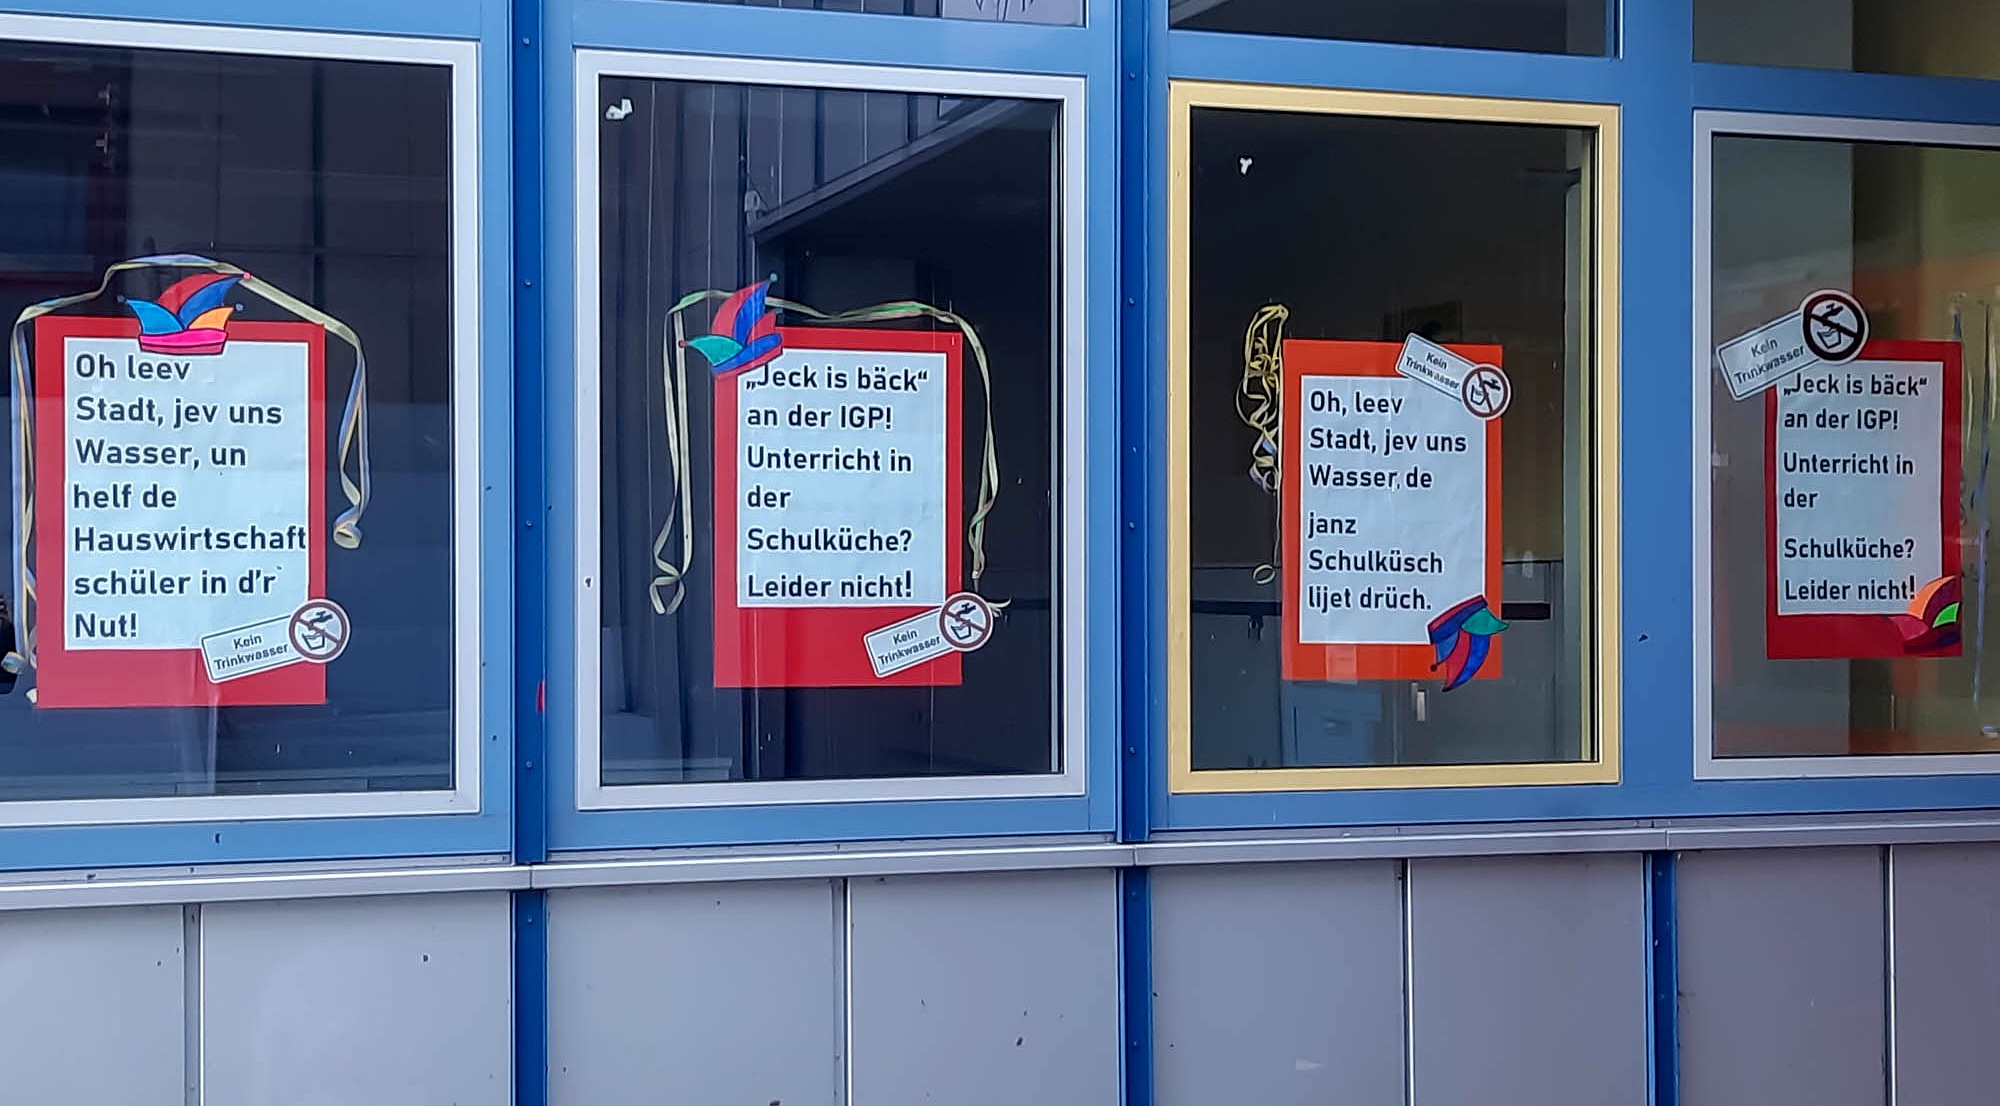 Oh leev
Stadt, jev uns
Wasser, un
helf de
Hauswirtschaft
schüler in d'r
Nut!
Kein
Trinkwasser
„Jeck is bäck“
an der IGP!
Unterricht in
der
Schulküche?
Leider nicht!
Kein
Trinkwasser
Kein
Trinkwasser
Oh, leev
Stadt, jev uns
Wasser, de
janz
Schulküsch
lijet drüch.
Kein
Trinkwasser
„Jeck is bäck“
an der IGP!
Unterricht in
der
Schulküche?
Leider nicht!